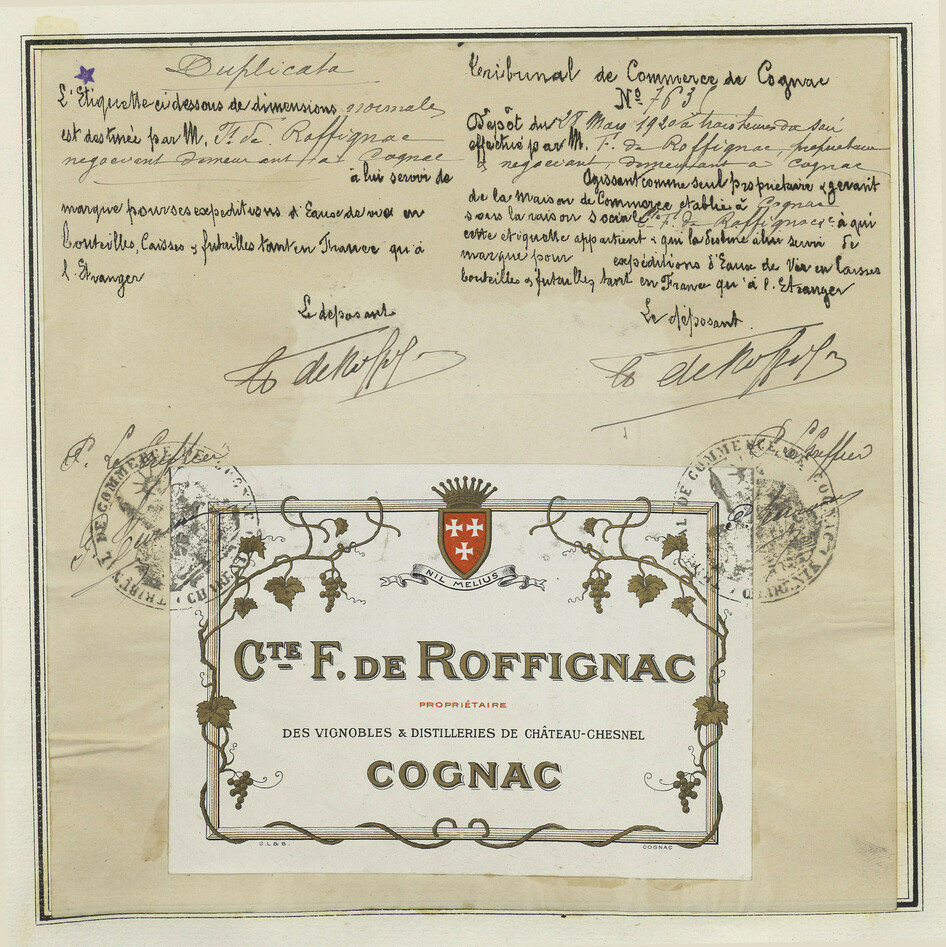 Duplicata
L'Etiquette ci dessous de dimensions normales
est destinée par M. F. de Roffignac
negociant demeurant à Cognac
à lui servir de
marque pour ses expeditions d'Eaux de vie en
bouteilles, Caisses & futailles tant en France qu'à
l'Etranger
Le déposant
P. Le Greffier
Tribunal de Commerce de Cognac
No 763
Dépôt du 28 Mars 1920 à trois heures du soir
effectué par M. F. de Roffignac, propriétaire
& negociant, demeurant à Cognac
Agissant comme seul propriétaire & gerant
de la Maison de Commerce etablie à Cognac
sous la raison sociale Cte F. de Roffignac & Cie à qui
cette etiquette appartient & qui la destine à lui servir de
marque pour expéditions d'Eaux de Vie en Caisses
bouteilles & futailles, tant en France qu'à l'Etranger
Le déposant
P. Le Greffier
TRIBUNAL DE COMMERCE DE COGNAC
TRIBUNAL DE COMMERCE DE COGNAC
NIL MELIUS
CTE F. DE ROFFIGNAC
PROPRIÉTAIRE
DES VIGNOBLES & DISTILLERIES DE CHÂTEAU-CHESNEL
COGNAC
C.L & B.
COGNAC